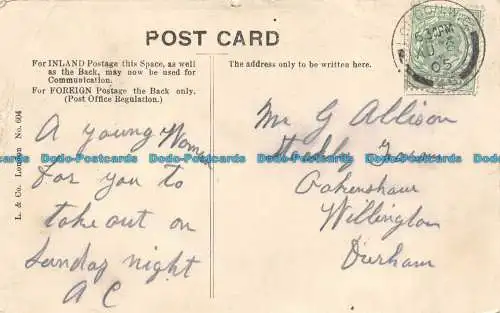 POST CARD
For INLAND Postage this Space, as well
as the Back, may now be used for
Communication.
For FOREIGN Postage the Back only.
(Post Office Regulation.)
The address only to be written here.
L. & Co. London No. 604
A young Woman
for you to
take out on
Sunday night
A C
Mr G Allison
Oakenshaw
Willington
Durham
5 30 PM
AU 2
05
Dodo-Postcards Dodo-Postcards Dodo-Postcards Dodo-Postcards
Dodo-Postcards Dodo-Postcards Dodo-Postcards Dodo-Postcards
Dodo-Postcards Dodo-Postcards Dodo-Postcards Dodo-Postcards